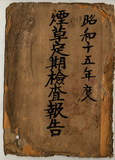 昭和十五年度
煙草定期検査報告